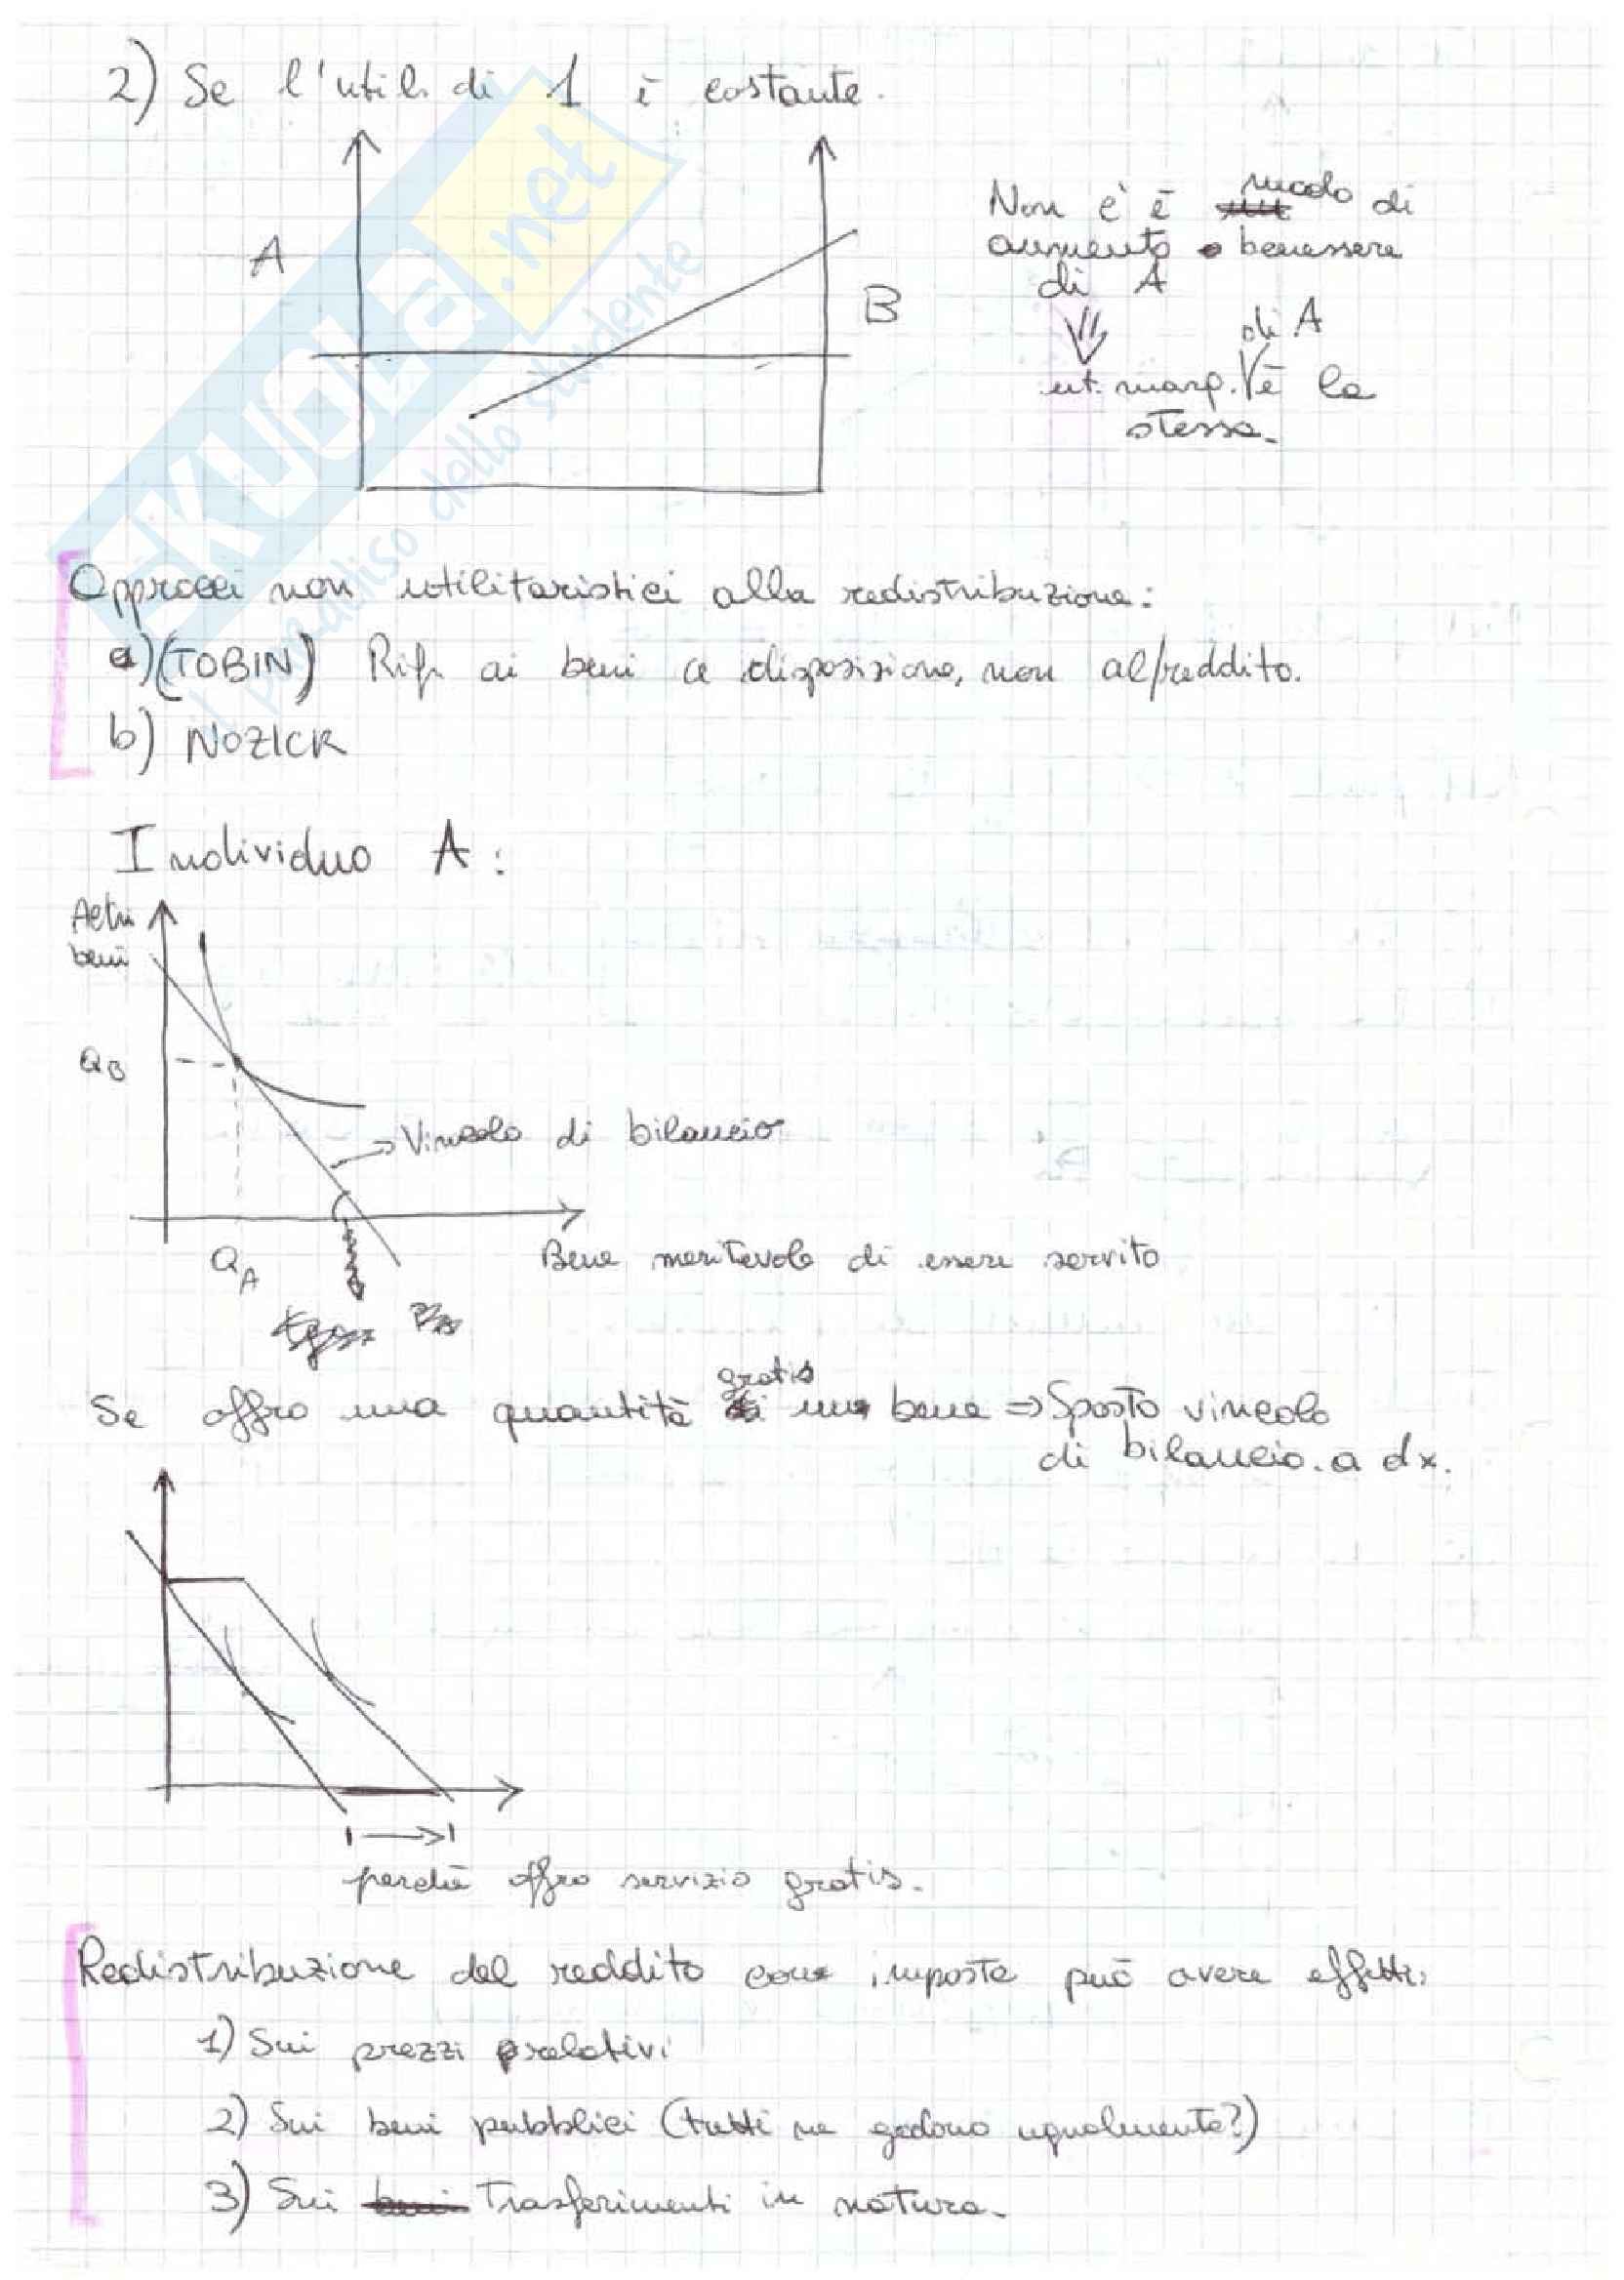 2) Se l'util. di 1 è costante.
A
B
Non c'è modo di
aumento benessere
di A
di A
ut. marg. è la
stessa.
SKUOLA.net
il paradiso dello studente
Approcci non utilitaristici alla redistribuzione:
a) (TOBIN) Rif. ai beni a disposizione, non al reddito.
b) NOZICK
Individuo A:
Altri
beni
QB
→ Vincolo di bilancio
QA
Bene meritevole di essere servito
gratis
Se offro una quantità un bene ⇒ Sposto vincolo
di bilancio a dx.
perchè offro servizio gratis.
Redistribuzione del reddito con imposte può avere effetti:
1) Sui prezzi relativi
2) Sui beni pubblici (tutti ne godono ugualmente?)
3) Sui Trasferimenti in natura.